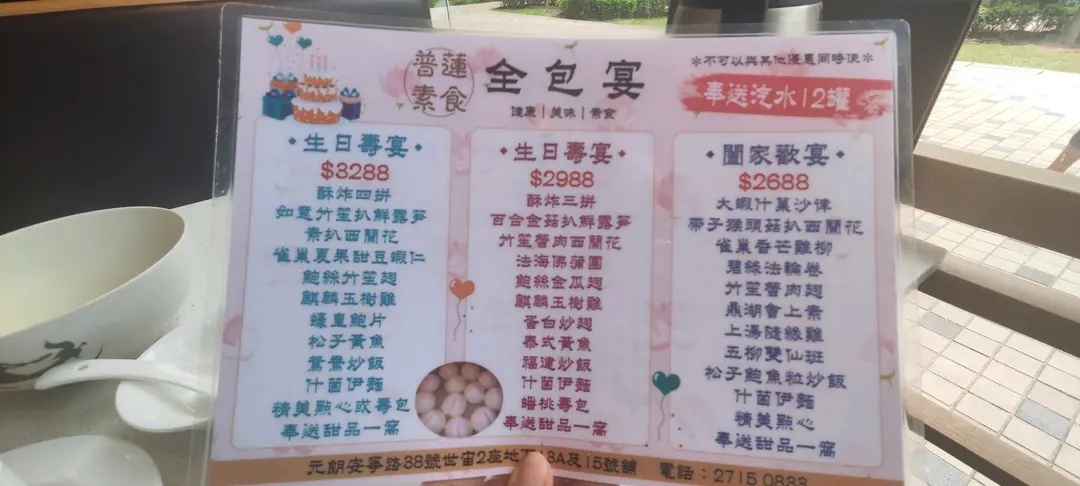 普蓮素食
全包宴
健康 | 美味 | 素食
*不可以與其他優惠同時使*
奉送汽水12罐
生日壽宴
$3288
酥炸四拼
如意竹笙扒鮮露筍
素扒西蘭花
雀巢夏果甜豆蝦仁
鮑絲竹笙翅
麒麟玉樹雞
蠔皇鮑片
松子黃魚
鴛鴦炒飯
什菌伊麵
精美點心或壽包
奉送甜品一窩
生日壽宴
$2988
酥炸三拼
百合金菇扒鮮露筍
竹笙蟹肉西蘭花
法海佛蒲團
鮑絲金瓜翅
麒麟玉樹雞
蛋白炒翅
泰式黃魚
福建炒飯
什菌伊麵
蟠桃壽包
奉送甜品一窩
闔家歡宴
$2688
大蝦什菓沙律
帶子猴頭菇扒西蘭花
雀巢香芒雞柳
碧綠法輪卷
竹笙蟹肉翅
鼎湖會上素
上湯隨緣雞
五柳雙仙班
松子鮑魚粒炒飯
什菌伊麵
精美點心
奉送甜品一窩
元朗安寧路38號世宙2座地 3A及15號舖 電話：2715 0833